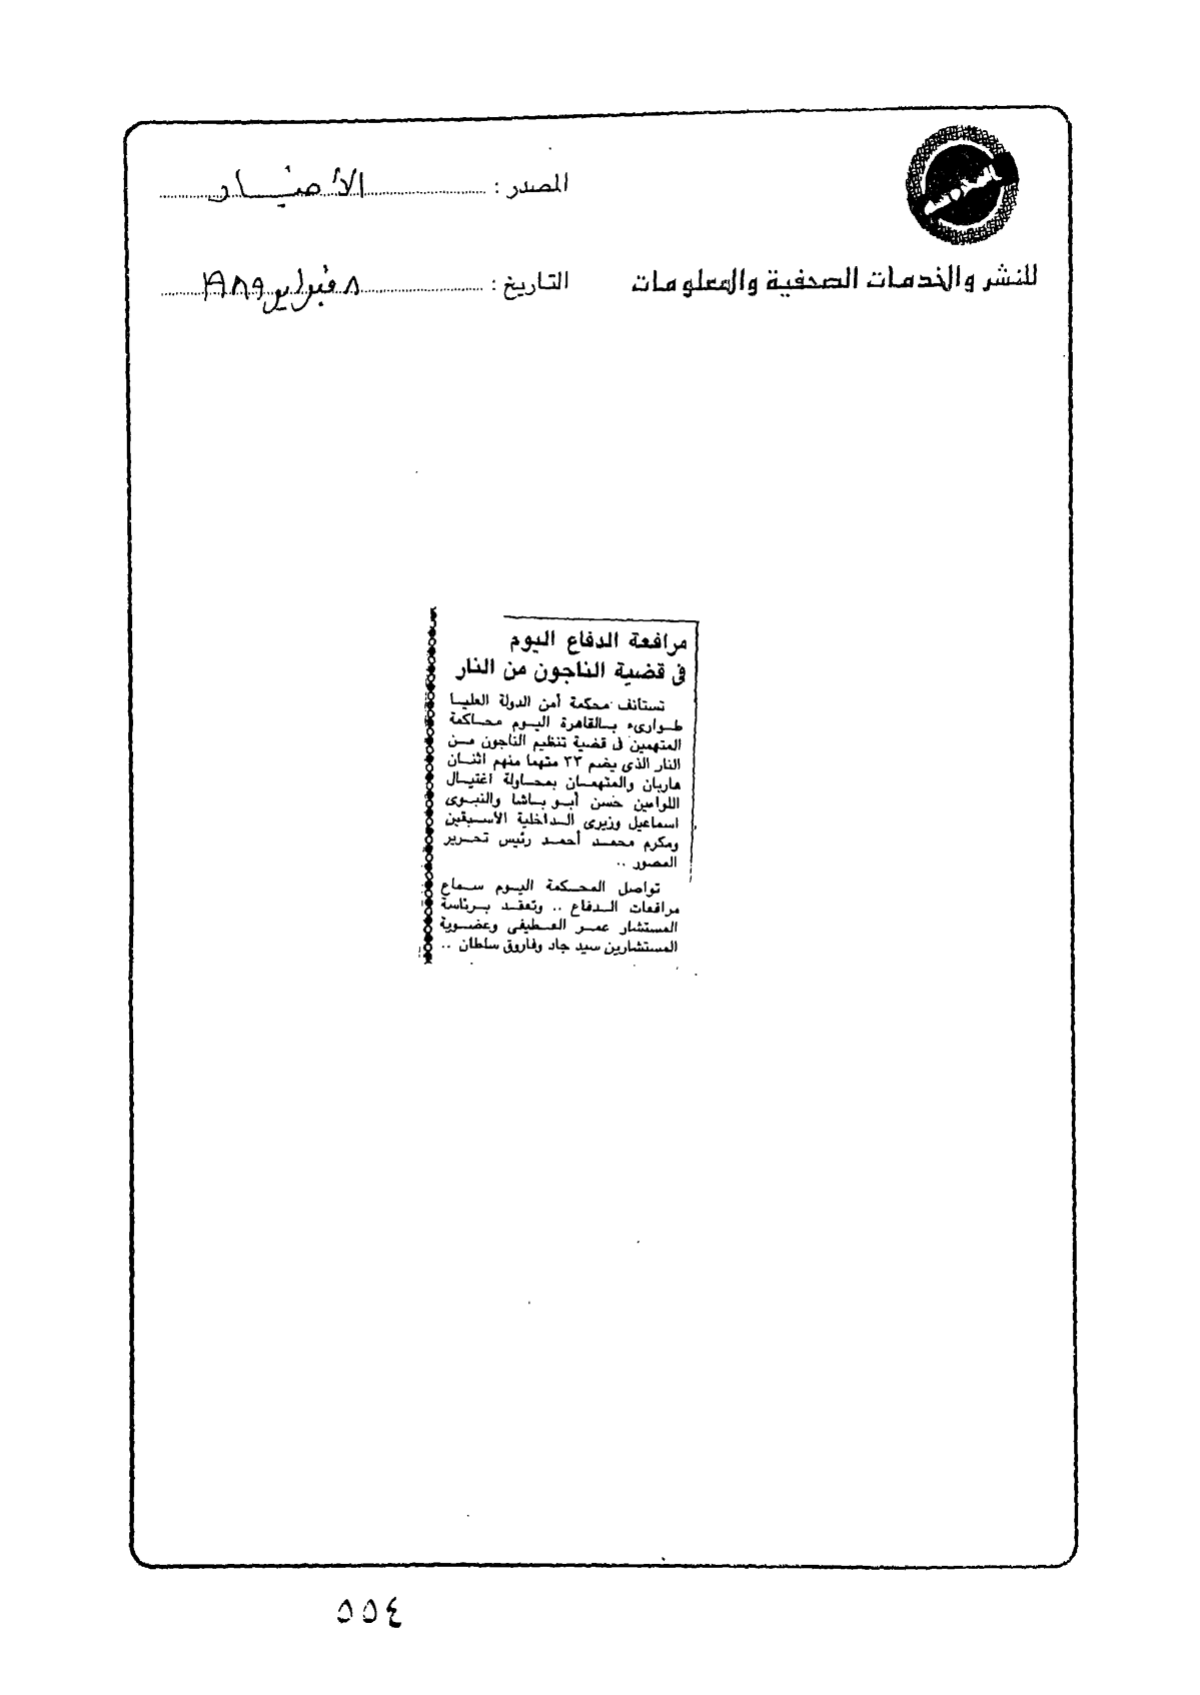 المصدر : الأخبار
للنشر والخدمات الصحفية والمعلومات
التاريخ : ٨ فبراير ١٩٨٩
مرافعة الدفاع اليوم
فى قضية الناجون من النار
تستأنف محكمة أمن الدولة العليا
طوارىء بالقاهرة اليوم محاكمة
المتهمين فى قضية تنظيم الناجون من
النار الذى يضم ٣٣ متهما منهم اثنان
هاربان والمتهمان بمحاولة اغتيال
اللواءين حسن أبو باشا والنبوى
اسماعيل وزيرى الداخلية الأسبقين
ومكرم محمد أحمد رئيس تحرير
المصور ..
تواصل المحكمة اليوم سماع
مرافعات الدفاع .. وتعقد برئاسة
المستشار عمر العطيفى وعضوية
المستشارين سيد جاد وفاروق سلطان ..
٥٥٤